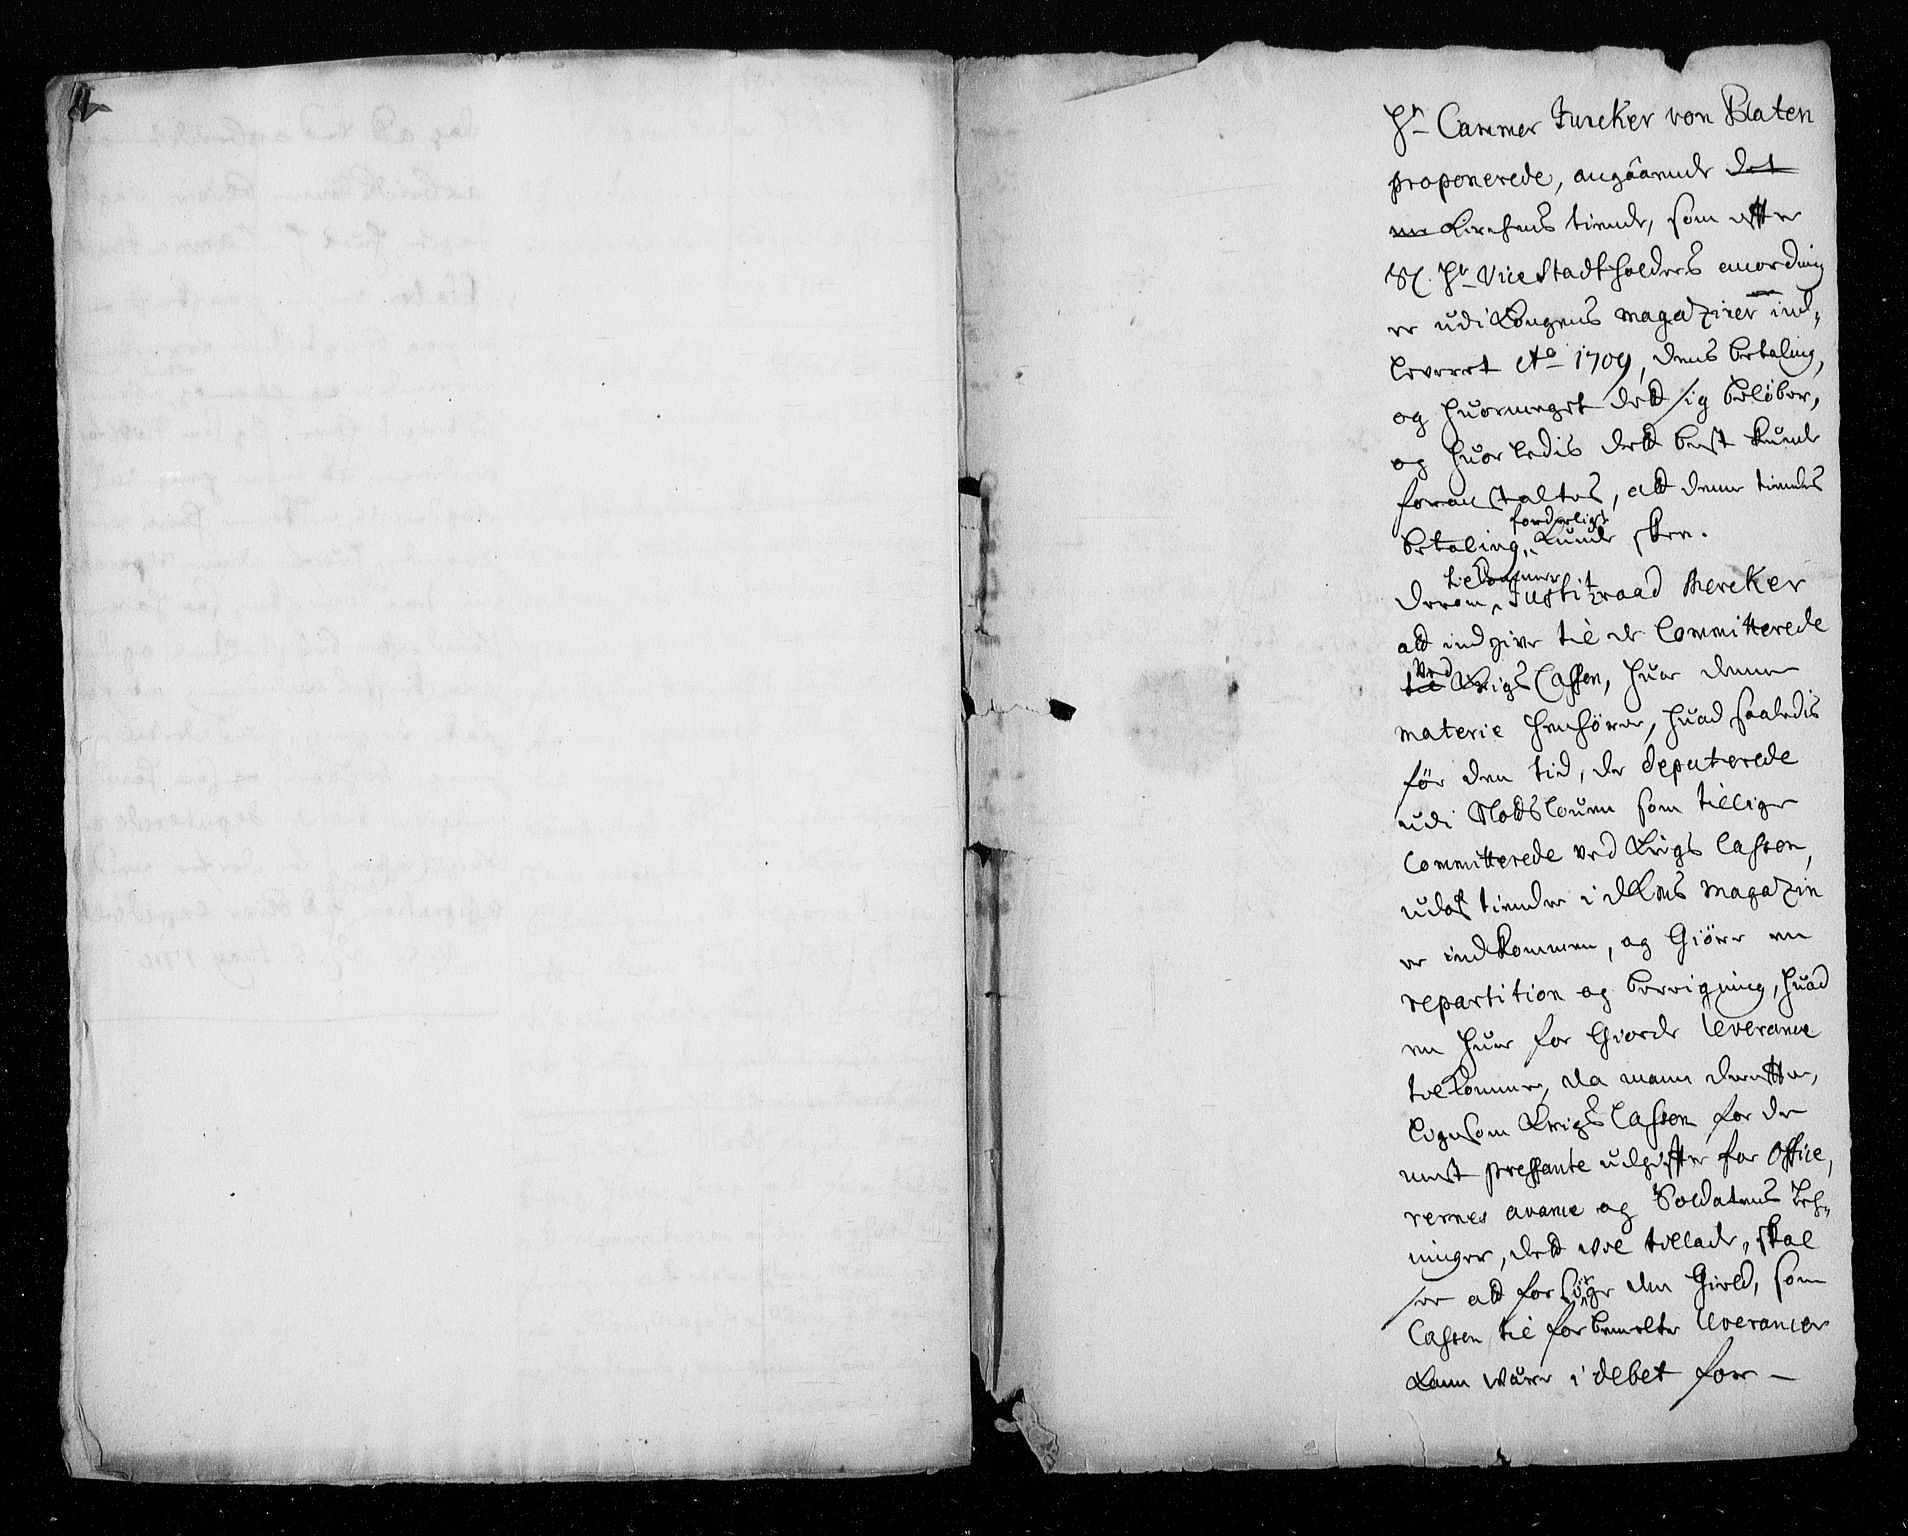 Hr Cammer Juncker von Platen
proponerede, angaaende det
en Kirchens tiende, som efter
Sl. Hr Vice Stadtholders anordning
er udi Kongens magaziner ind-
leveret Ao 1709, dens betaling,
og huormeget det sig beløber,
og huorledis det best kunde
foranstaltes, att denne tiendes
forderligst
betaling, kunde skee.
tilkommer
Derom Justitzraad Mercker
att indgive til de Committerede
ved
til Krigs Cassen, huor denne
materie henhører, huad saaledis
før den tid, de deputerede
udi Slotsloven som tillige
Committerede ved Krigs Cassen,
udaf tiender i dLens magazin
er indkommen, og Giøre en
repartition og beregning, huad
en huer for Giorde leverance
tilkommer, da mann derefter,
ligesom Krigs Cassen for de
mest pressante udgifter for Office-
rernes avance og Soldatens Leh-
ninger, det vil tillade, skal
see att forsørge den Gield, som
Cassen til forbemelte leverancer
kann være i debet for –